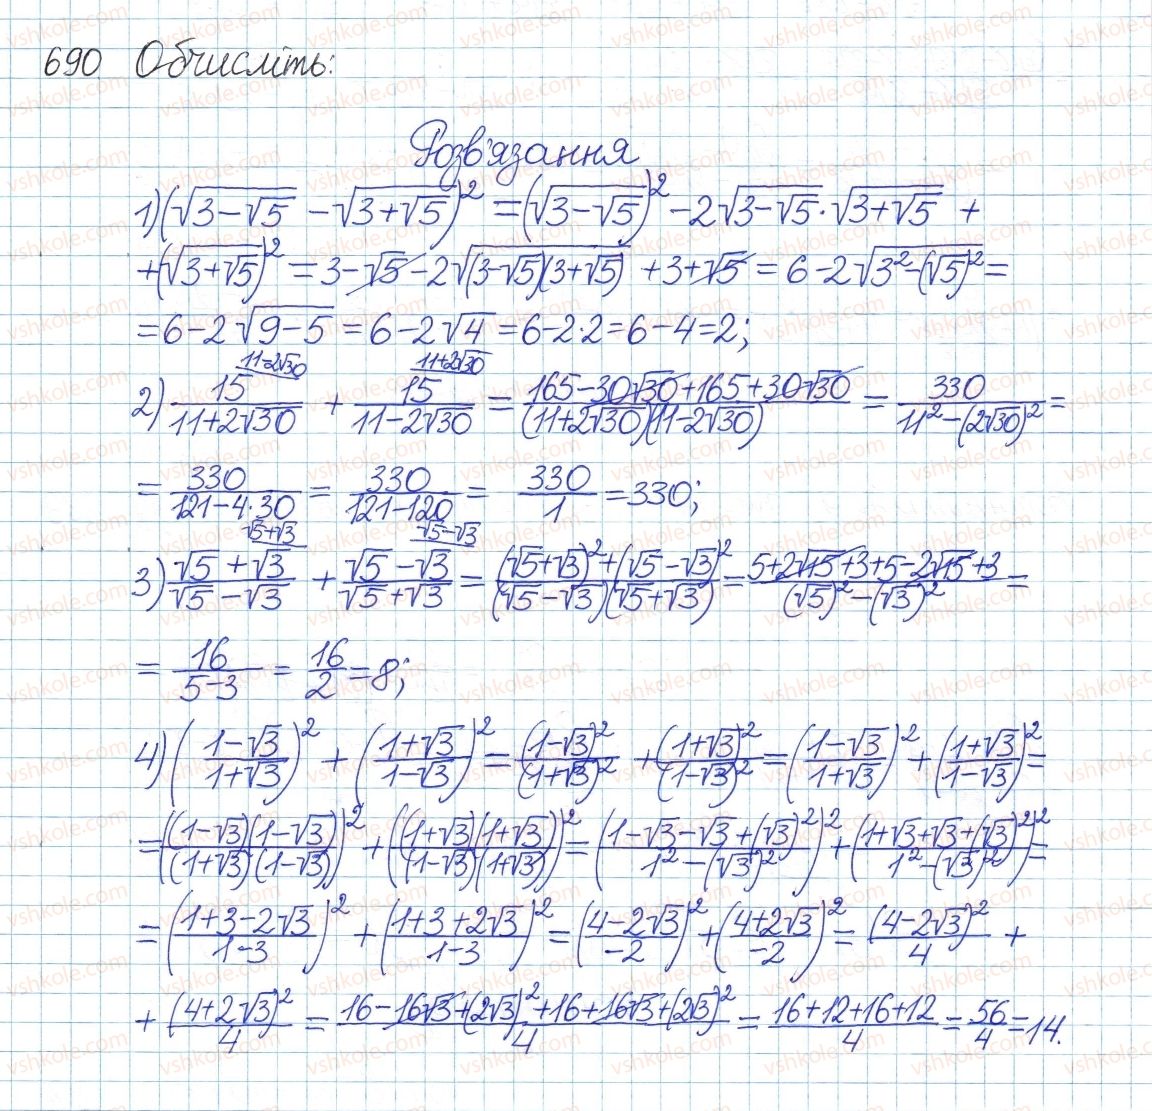 690 Обчисліть:
Розв'язання
1) (√(3-√5) - √(3+√5))² = (√(3-√5))² - 2√(3-√5)·√(3+√5) +
+ (√(3+√5))² = 3-√5 - 2√((3-√5)(3+√5)) + 3+√5 = 6-2√(3²-(√5)²) =
= 6-2√(9-5) = 6-2√4 = 6-2·2 = 6-4 = 2;
2) 15/(11+2√30) (11-2√30) + 15/(11-2√30) (11+2√30) = (165-30√30+165+30√30)/((11+2√30)(11-2√30)) = 330/(11²-(2√30)²) =
= 330/(121-4·30) = 330/(121-120) = 330/1 = 330;
3) (√5+√3)/(√5-√3) (√5+√3) + (√5-√3)/(√5+√3) (√5-√3) = ((√5+√3)²+(√5-√3)²)/((√5-√3)(√5+√3)) = (5+2√15+3+5-2√15+3)/((√5)²-(√3)²) =
= 16/(5-3) = 16/2 = 8;
4) ((1-√3)/(1+√3))² + ((1+√3)/(1-√3))² = (1-√3)²/(1+√3)² + (1+√3)²/(1-√3)² = ((1-√3)/(1+√3))² + ((1+√3)/(1-√3))² =
= (((1-√3)(1-√3))/((1+√3)(1-√3)))² + (((1+√3)(1+√3))/((1-√3)(1+√3)))² = ((1-√3-√3+(√3)²)/(1²-(√3)²))² + ((1+√3+√3+(√3)²)/(1²-(√3)²))² =
= ((1+3-2√3)/(1-3))² + ((1+3+2√3)/(1-3))² = ((4-2√3)/(-2))² + ((4+2√3)/(-2))² = (4-2√3)²/4 +
+ (4+2√3)²/4 = (16-16√3+(2√3)²+16+16√3+(2√3)²)/4 = (16+12+16+12)/4 = 56/4 = 14.
vshkole.com